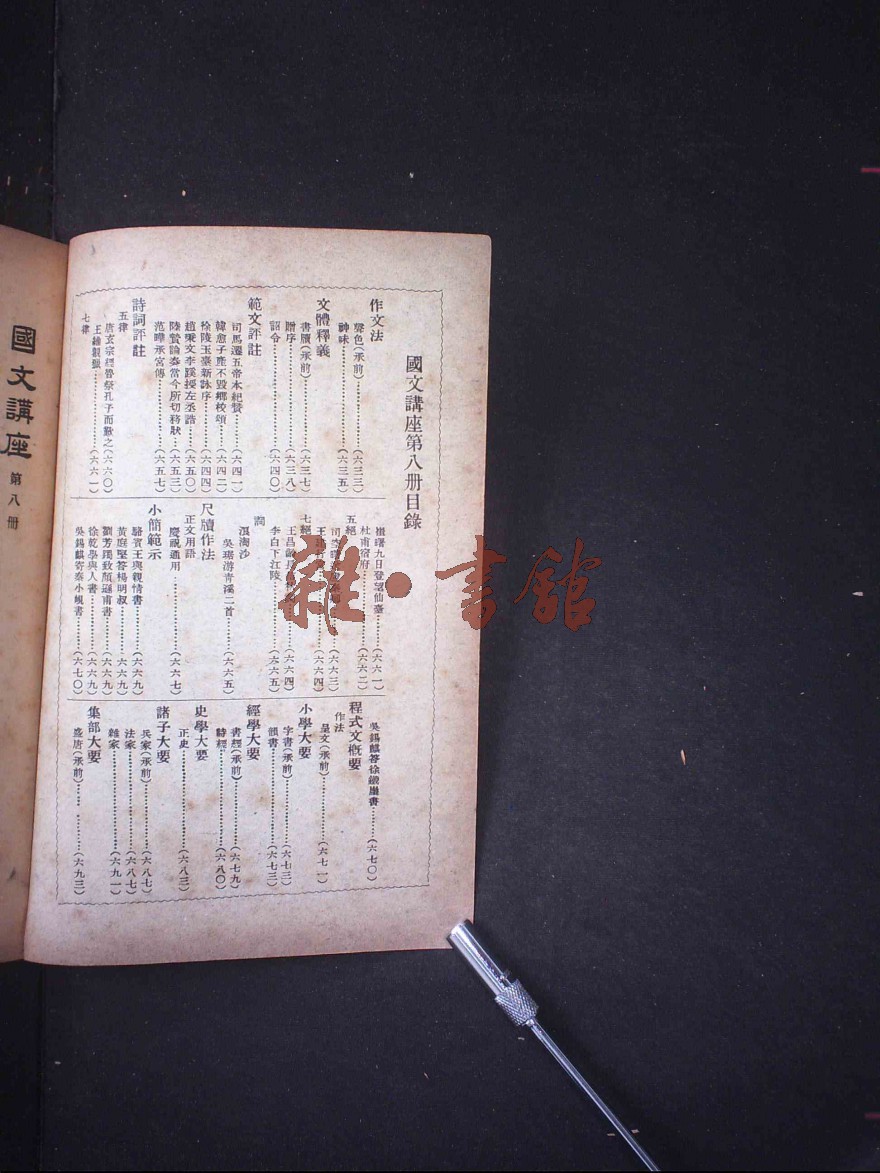 國文講座第八册目錄
作文法
聲色(承前)………(六三三)
神味………(六三五)
文體釋義
書牘(承前)………(六三七)
贈序………(六三八)
詔令………(六四〇)
範文評註
司馬遷五帝本紀贊………(六四一)
韓愈子產不毀鄉校頌………(六四二)
徐陵玉臺新詠序………(六四四)
趙秉文李蹊授左丞誥………(六五〇)
陸贄論奏當今所切務狀………(六五三)
范曄承宮傳………(六五七)
詩詞評註
五律
唐玄宗經魯祭孔子而歎之(六六〇)
王維觀獵………(六六一)
七律
崔曙九日登望仙臺………(六六一)
杜甫宿府………(六六二)
五絕
司空曙………(六六三)
王………(六六四)
七絕
王昌齡長………(六六四)
李白下江陵………(六六五)
詞
浪淘沙
吳瑛游青溪二首………(六六五)
尺牘作法
正文用語
慶祝通用………(六六七)
小簡範示
駱賓王與親情書………(六六九)
黃庭堅答楊明叔………(六六九)
劉芳躅致顏遜甫書………(六六九)
徐乾學與人書………(六六九)
吳錫麒寄秦小峴書………(六七〇)
吳錫麒答徐鐵崖書………(六七〇)
程式文概要
作法
呈文(承前)………(六七一)
小學大要
字書(承前)………(六七三)
韻書………(六七三)
經學大要
書經(承前)………(六七九)
詩經………(六八〇)
史學大要
正史………(六八三)
諸子大要
兵家(承前)………(六八七)
法家………(六八七)
雜家………(六九一)
集部大要
盛唐(承前)………(六九三)
國文講座 第八册
雜·書館